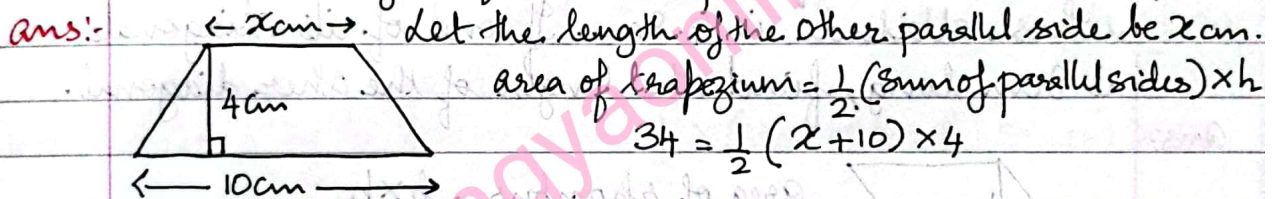 ans:- ← xcm →. Let the length of the other parallel side be xcm.
area of trapezium = 1/2 (sum of parallel sides) × h
4cm
34 = 1/2 (x + 10) × 4
← 10cm →